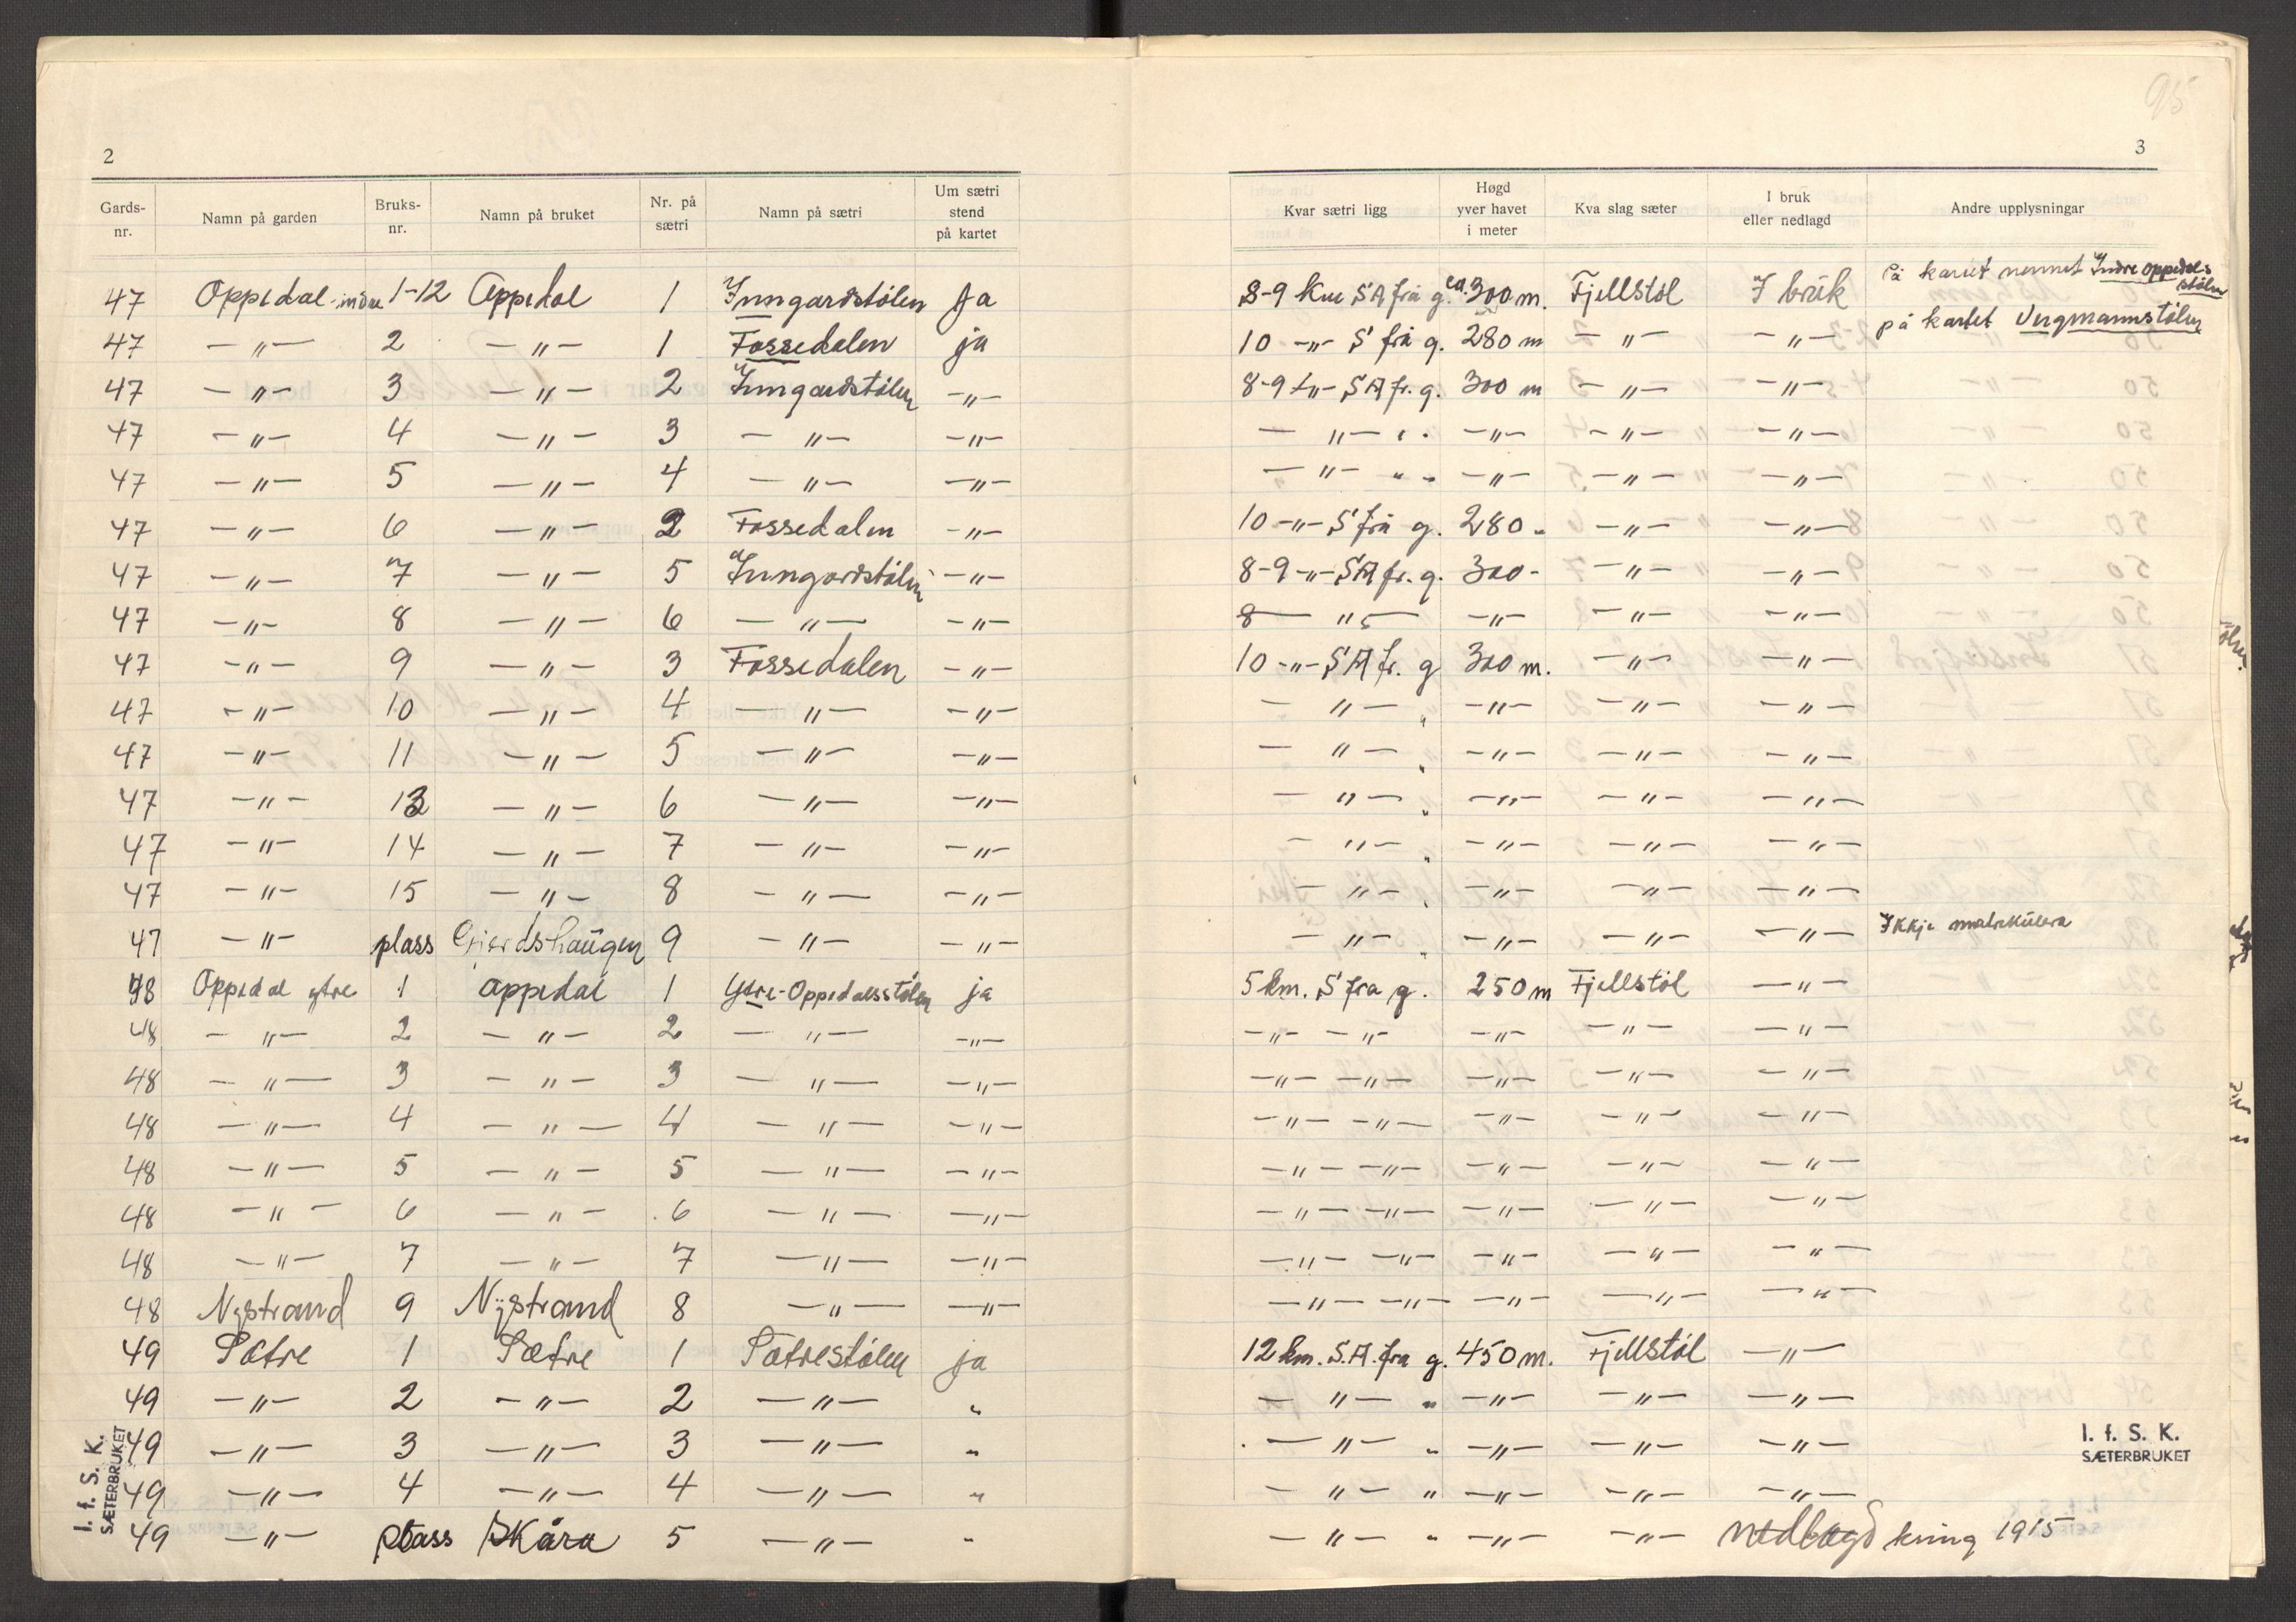 95
2
3
Gards-nr. Namn på garden Bruks-nr. Namn på bruket Nr. på sætri Namn på sætri Um sætri stend på kartet Kvar sætri ligg Høgd yver havet i meter Kva slag sæter I bruk eller nedlagd Andre upplysningar
47 Oppedal indre 1-12 Oppedal 1 Inngardstølen Ja 8-9 km SA frå g. ca. 300 m. Fjellstøl I bruk På kartet nemnt Indre Oppedalsstølen
47 -"- 2 -"- 1 Fossedalen ja 10 -"- S frå g. 280 m -"- -"- på kartet Ungmannstølen
47 -"- 3 -"- 2 Inngardstølen -"- 8-9 -"- SA fr. g. 300 m -"- -"-
47 -"- 4 -"- 3 -"- -"- -"- " " -"- -"- -"-
47 -"- 5 -"- 4 -"- -"- -"- " " -"- -"- -"-
47 -"- 6 -"- 2 Fossedalen -"- 10 -"- S frå g. 280 - -"- -"-
47 -"- 7 -"- 5 Inngardstølen -"- 8-9 -"- SA fr. g. 300 - -"- -"-
47 -"- 8 -"- 6 -"- -"- 8 -"- -"- -"- -"-
47 -"- 9 -"- 3 Fossedalen -"- 10 -"- SA fr. g 300 m. -"- -"-
47 -"- 10 -"- 4 -"- -"- -"- " -"- -"- -"-
47 -"- 11 -"- 5 -"- -"- -"- " -"- -"- -"-
47 -"- 13 -"- 6 -"- -"- -"- " -"- -"- -"-
47 -"- 14 -"- 7 -"- -"- -"- " -"- -"- -"-
47 -"- 15 -"- 8 -"- -"- -"- " -"- -"- -"-
47 -"- plass Gjerdshaugen 9 -"- -"- -"- " -"- -"- -"- Ikkje matrikulera
48 Oppedal ytre 1 Oppedal 1 Ytre-Oppedalsstølen ja 5 km. S fra g. 250 m Fjellstøl -"-
48 -"- 2 -"- 2 -"- -"- -"- -"- -"- -"- -"-
48 -"- 3 -"- 3 -"- -"- -"- -"- -"- -"- -"-
48 -"- 4 -"- 4 -"- -"- -"- -"- -"- -"- -"-
48 -"- 5 -"- 5 -"- -"- -"- -"- -"- -"- -"-
48 -"- 6 -"- 6 -"- -"- -"- -"- -"- -"- -"-
48 -"- 7 -"- 7 -"- -"- -"- -"- -"- -"- -"-
48 Nystrand 9 Nystrand 8 -"- -"- -"- -"- -"- -"- -"-
49 Sætre 1 Sætre 1 Sætrestølen ja 12 km. S.A. fra g. 450 m. Fjellstøl -"-
49 -"- 2 -"- 2 -"- " -"- " -"- -"- -"-
49 -"- 3 -"- 3 -"- " -"- " -"- -"- -"-
49 -"- 4 -"- 4 -"- " -"- " -"- -"- -"-
49 -"- plass Skåra 5 -"- " -"- " -"- -"- nedlagd kring 1915
I. f. S. K.
SÆTERBRUKET
I. f. S. K.
SÆTERBRUKET